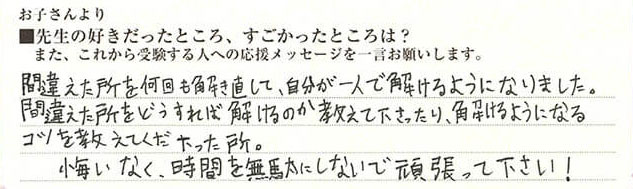 お子さんより
■先生の好きだったところ、すごかったところは？
また、これから受験する人への応援メッセージを一言お願いします。
間違えた所を何回も解き直して、自分が一人で解けるようになりました。
間違えた所をどうすれば解けるのか教えて下さったり、解けるようになる
コツを教えてくださった所。
悔いなく、時間を無駄にしないで頑張って下さい！